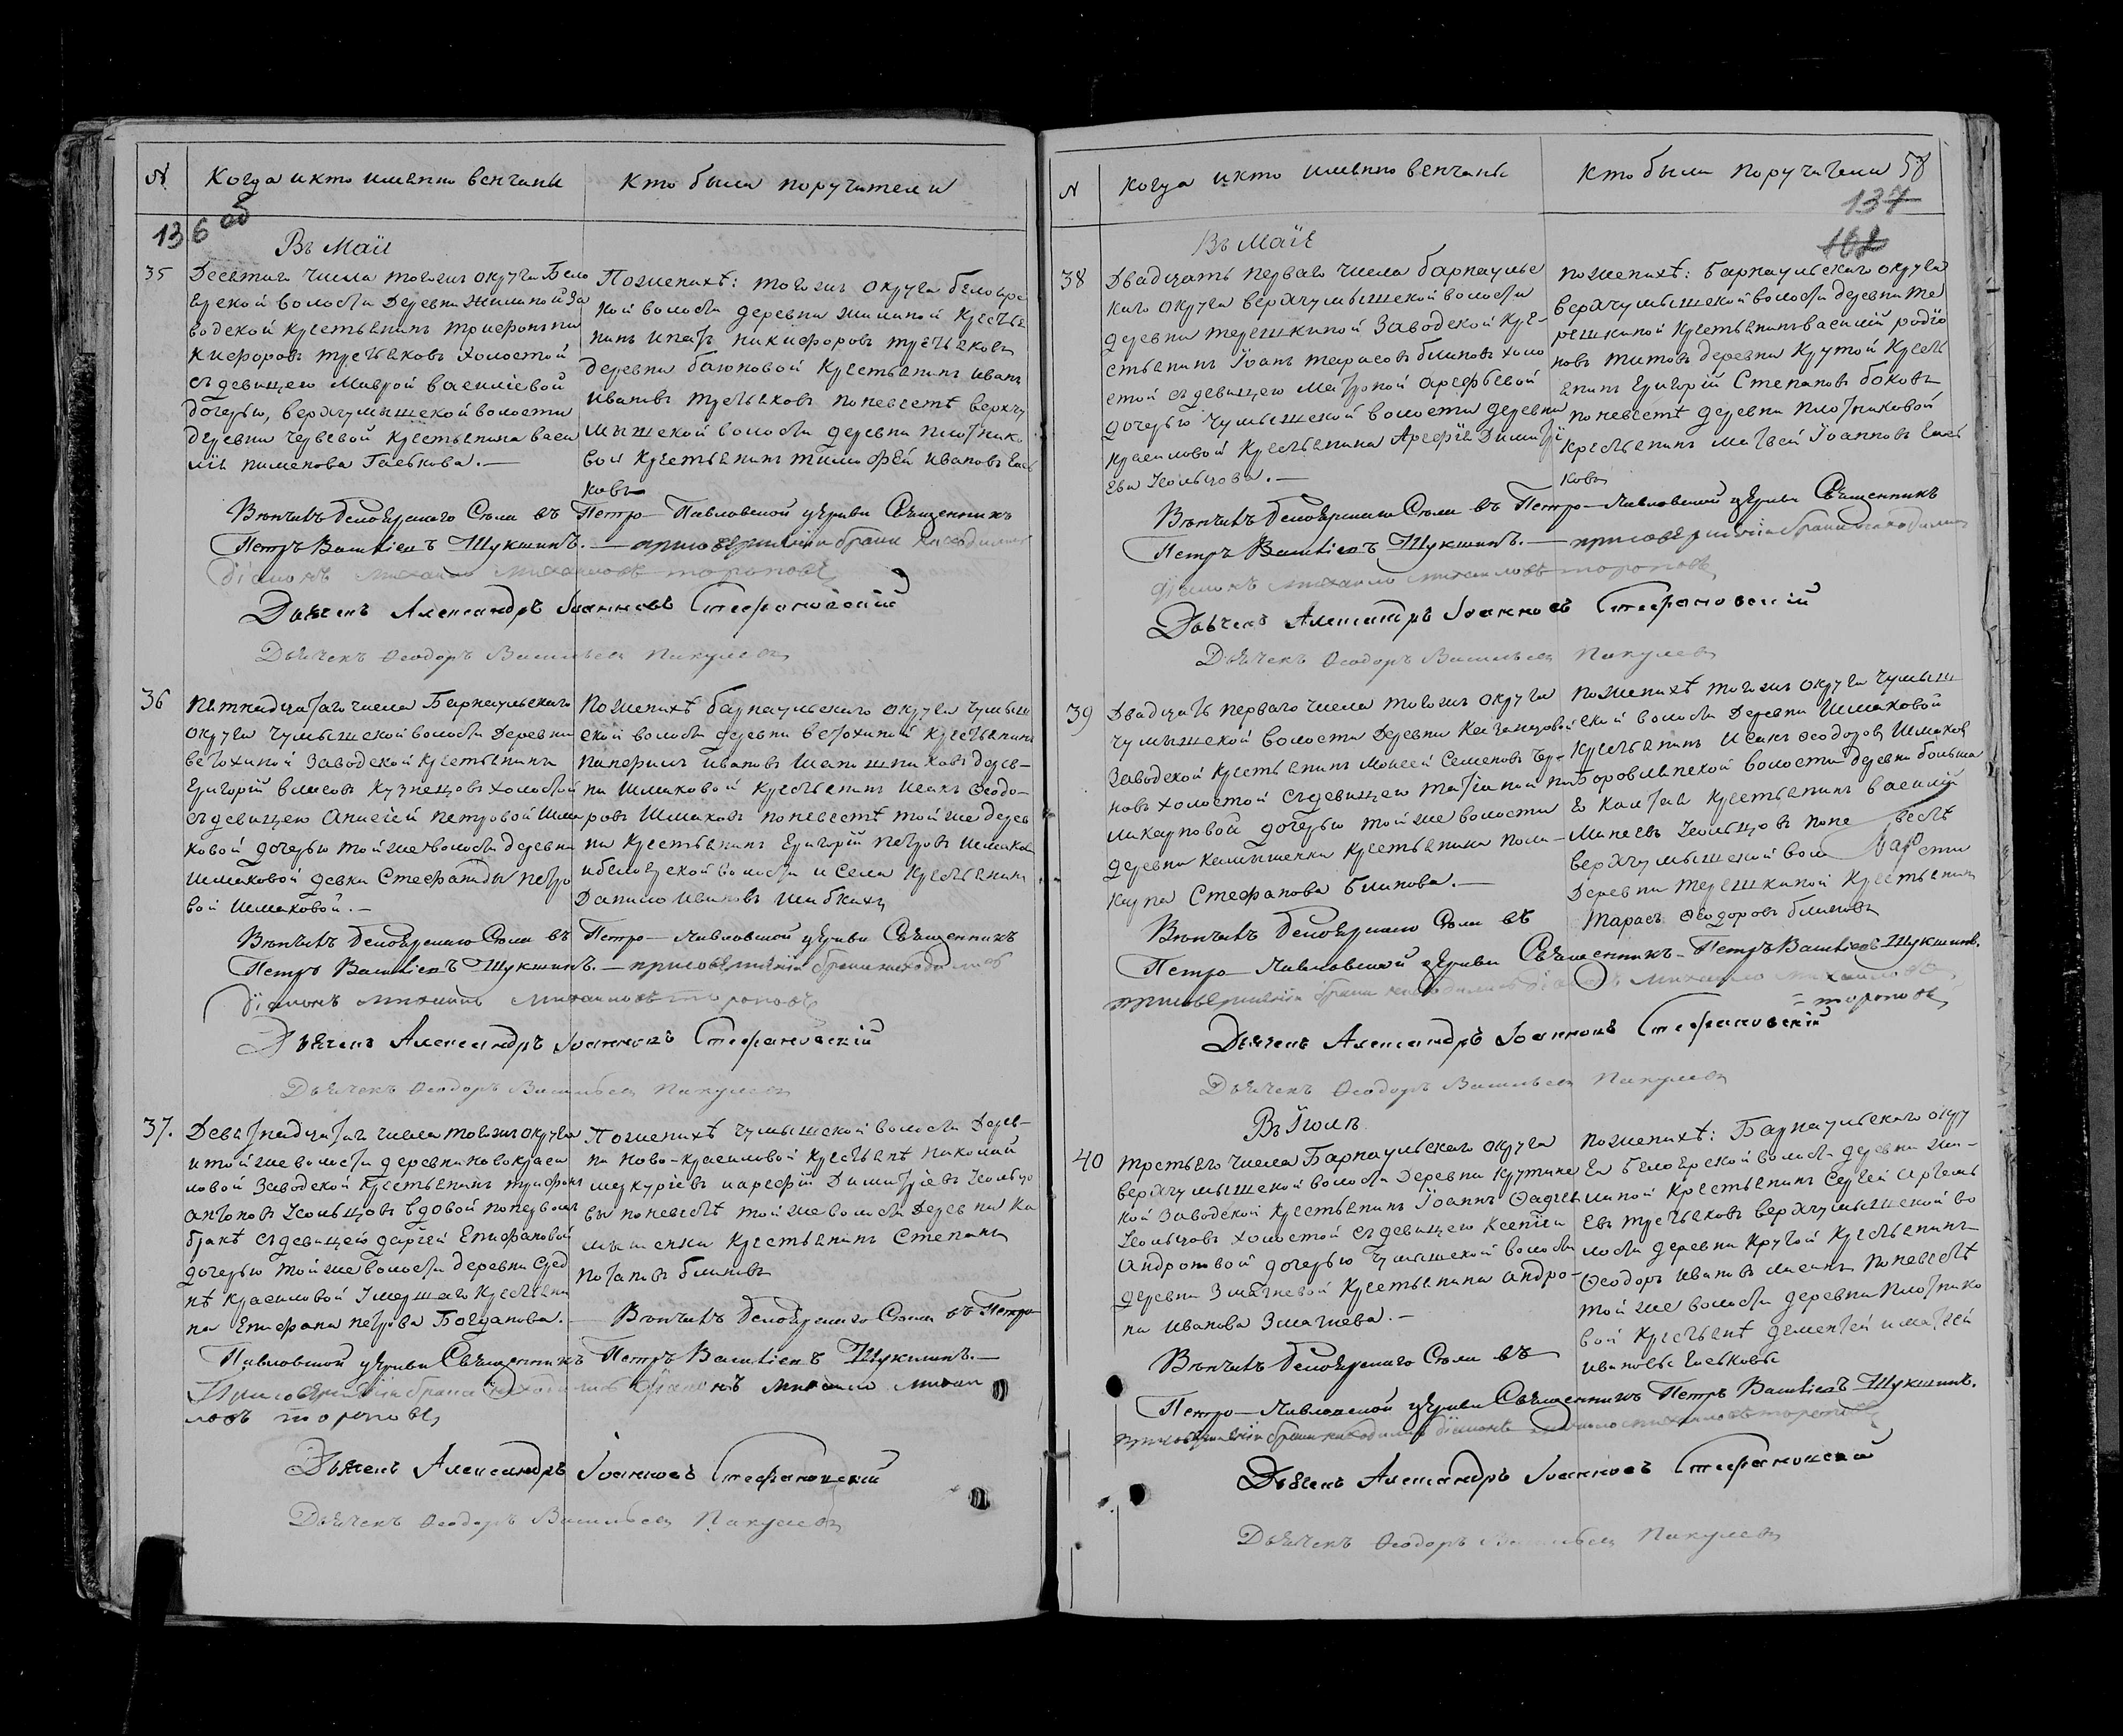 № Когда и кто именно венчаны
Кто были поручители
136 об
Въ Маiѣ
35
Десятаго числа тогожъ округа Бело
ярской волости деревни Жилиной За
водской крестьянинъ Трифонъ Ни
кифоровъ Третьяковъ холостой
съ девицею Маврой Василіевой
дочерью, верхчумышской волости
деревни Червевой крестьянина Васи
лія Пименова Гаськова.—
По женихѣ: тогожъ округа белояр
ской волости деревни жилиной крестья
нинъ Ипатъ Никифоровъ Третьяковъ
деревни баюновой Крестьянинъ Иванъ
Ивановъ Третьяковъ по невестѣ верхчу
мышской волости деревни Плотнико
вой Крестьянинъ Тимофѣй Ивановъ Гась
ковъ
Венчалъ белоярскаго Села въ Петро-Павловской церкви Священникъ
Петръ Васильевъ Шукшинъ.— при совершеніи брака находился
діаконъ михаило михаиловъ тороповъ
Дьячекъ Александръ Іоанновъ Стефановскій
Дьячекъ Ѳеодоръ Васильевъ Пакулевъ
36
Пятнадцатаго числа Барнаульскаго
округа Чумышской волости деревни
ветохиной Заводской Крестьянинъ
Григорій власовъ Кузнецовъ холостой
съ девицею Анисіей Петровой Шма
ковой дочерью той же волости деревни
Шмаковой девки Стефаниды петро
вой Шмаковой.—
По женихѣ барнаульскаго округа Чумыш
ской волости деревни ветохиной крестьянинъ
Панфилъ Ивановъ Шапошниковъ дерев-
ни Шмаковой Крестьянинъ Исакъ Ѳеодо-
ровъ Шмаковъ по невестѣ той же дерев
ни Крестьянинъ Григорій Петровъ Шмаковъ
и белоярской волости и Села Крестьянинъ
Данило Ивановъ Шабкихъ
Венчалъ белоярскаго Села въ Петро-Павловской церкви Священникъ
Петръ Васильевъ Шукшинъ.— при совершеніи брака находился
діаконъ михаилъ михаиловъ тороповъ
Дьячекъ Александръ Іоанновъ Стефановскій
Дьячекъ Ѳеодоръ Васильевъ Пакулевъ
37.
Девятнадцатаго числа тогожъ округа
и той же волости деревни новокраси
ловой Заводской Крестьянинъ Трифонъ
Антоновъ Кольцовъ вдовой по первомъ
бракѣ съ девицей дарьей Епифановой
дочерью той же волости деревни Сред
нѣ красиловой Умершаго Крестьяни
на Епифана петрова Богданова.—
По женихѣ Чумышской волости Дерев-
ни Ново-красиловой крестьянѣ Николай
меркуріевъ и арефій Димитріевъ Кольцо
вы по невестѣ той же волости деревни Ка
мышенки Крестьянинъ Степанъ
Потаповъ блиновъ
Венчалъ белоярскаго Села въ Петро-
Павловской церкви Священникъ Петръ Васильевъ Шукшинъ.—
При совершеніи брака находился діаконъ михаило михаи
ловъ тороповъ
Дьячекъ Александръ Іоанновъ Стефановскій
Дьячекъ Ѳеодоръ Васильевъ Пакулевъ
N Когда и кто именно венчаны
Кто были поручители 58
137
Въ Маiѣ
38
Двадцать перваго числа барнаульс
каго округа верхчумышской волости
деревни терешкиной Заводской Кре-
стьянинъ Іоанъ тарасовъ блиновъ холо
стой съ девицею матроной арефьевой
дочерью Чумышской волости деревни
Красиловой Крестьянина Арефія Димитрі
ева Кольцова.—
По женихѣ: барнаульскаго округа
верхчумышской волости деревни те
решкиной Крестьянинъ василий родіо
новъ титовъ деревни Крутой Кресть
янинъ Григорій Степановъ боковъ
по невестѣ деревни Плотниковой
Крестьянинъ матвей Іоанновъ Гась
ковъ
Венчалъ белоярскаго Села въ Петро-Павловской церкви Священникъ
Петръ Васильевъ Шукшинъ.— при совершеніи брака находился
діаконъ михаило михаиловъ тороповъ
Дьячекъ Александръ Іоанновъ Стефановскій
Дьячекъ Ѳеодоръ Васильевъ Пакулевъ
39
Двадцать перваго числа тогожъ округа
Чумышской волости деревни
Заводской Крестьянинъ моисей Семеновъ
новъ холостой съ девицею татіаной по
ликарповой дочерью той же волости
деревни Камышенки Крестьянина Поли-
карпа Стефанова блинова.—
По женихѣ тогожъ округа Чумыш
ской волости деревни Шмаковой
Крестьянинъ Исакъ Ѳеодоровъ Шмаковъ
Боровлянской волости деревни больша
го Калтая Крестьянинъ василий
Минеевъ Кольцовъ по не вестѣ
верхчумышской вол ости
деревни терешкиной Крестьянинъ
Тарасъ Ѳеодоровъ блиновъ
Венчалъ белоярскаго Села въ
Петро-Павловской церкви Священникъ-Петръ Васильевъ Шукшинъ.
при совершеніи брака находился діаконъ михаило михаиловъ
=тороповъ
Дьячекъ Александръ Іоанновъ Стефановскій
Дьячекъ Ѳеодоръ Васильевъ Пакулевъ
40
третьяго числа Барнаульскаго округа
верхчумышской волости деревни крутинс
кой Заводской Крестьянинъ Іоаннъ Фадеевъ
Кольцовъ холостой съ девицею Ксеніей
Андроновой дочерью Чумышской волости
деревни Змагневой Крестьянина андро-
на Иванова Змагнева.—
По женихѣ: Барнаульскаго окру
га белоярской волости деревни жи-
линой Крестьянинъ Сергей
евъ третьяковъ верхчумышской во
лости деревни Крутой Крестьянинъ
Ѳеодоръ Ивановъ по невестѣ
той же волости деревни Плотнико
вой Крестьянѣ дементей и матвей
Ивановы Гаськовы
Венчалъ белоярскаго Села въ
Петро-Павловской церкви Священникъ Петръ Васильевъ Шукшинъ.
при совершеніи брака находился діаконъ михаило михаиловъ тороповъ
Дьячекъ Александръ Іоанновъ Стефановскій
Дьячекъ Ѳеодоръ Васильевъ Пакулевъ